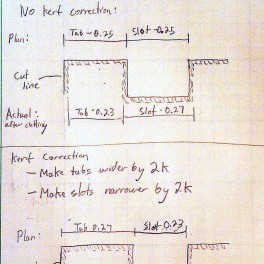 No kerf correction:
Plan: Tab - 0.25 Slot - 0.25
Cut line
Actual: after cutting Tab - 0.23 Slot - 0.27
Kerf Correction
- Make tabs wider by 2k
- Make slots narrower by 2k
Plan: Tab 0.27 Slot - 0.23